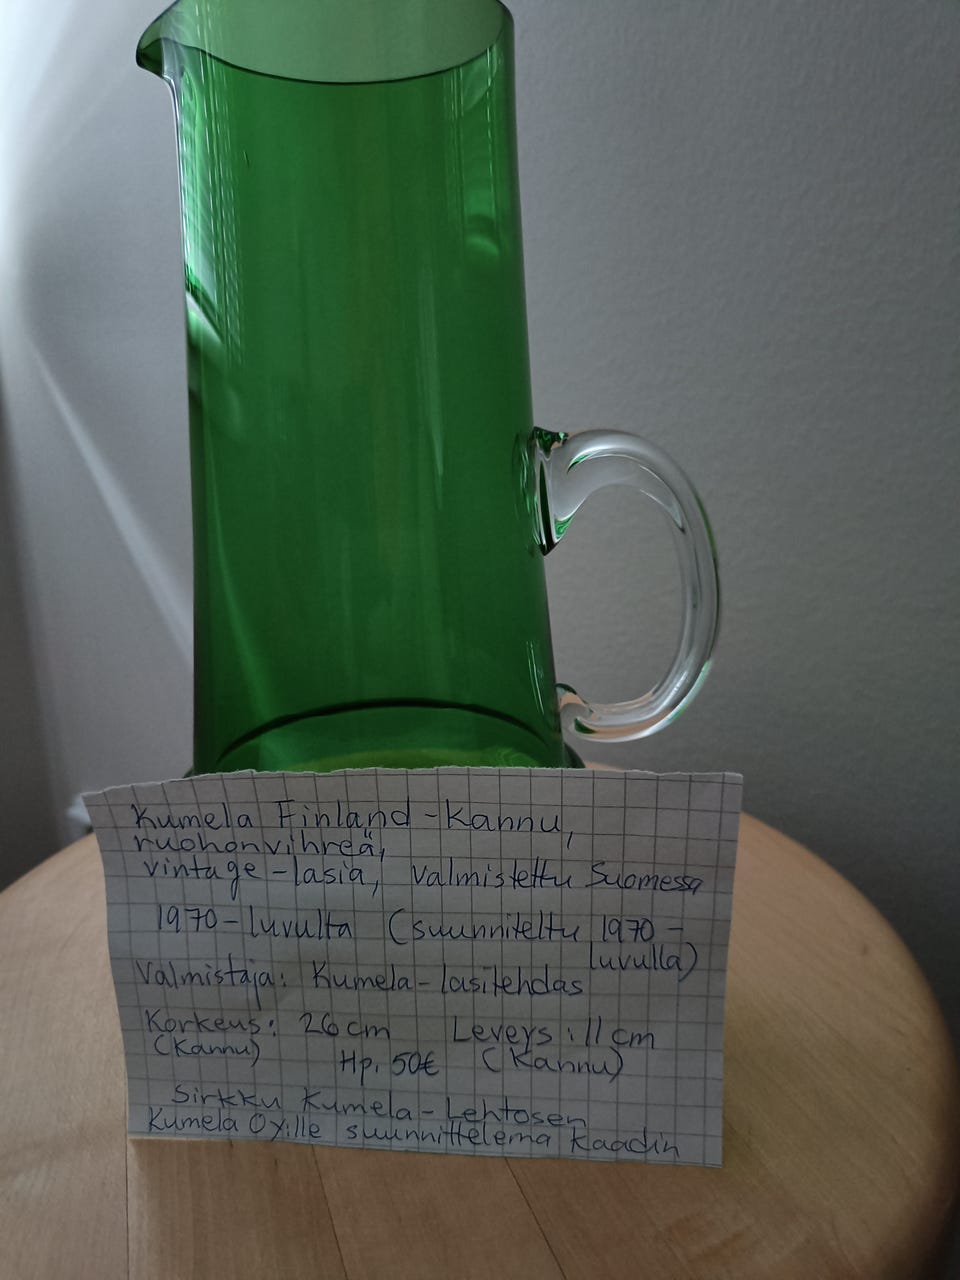 Kumela Finland-Kannu,
ruohonvihreä,
vintage-lasia, valmistettu Suomessa
1970-luvulta (suunniteltu 1970-
luvulla)
Valmistaja: Kumela-lasitehdas
Korkeus: 26 cm Leveys: 11 cm
(Kannu) Hp. 50€ (Kannu)
Sirkku Kumela-Lehtosen
Kumela Oy:lle suunnittelema kaadin